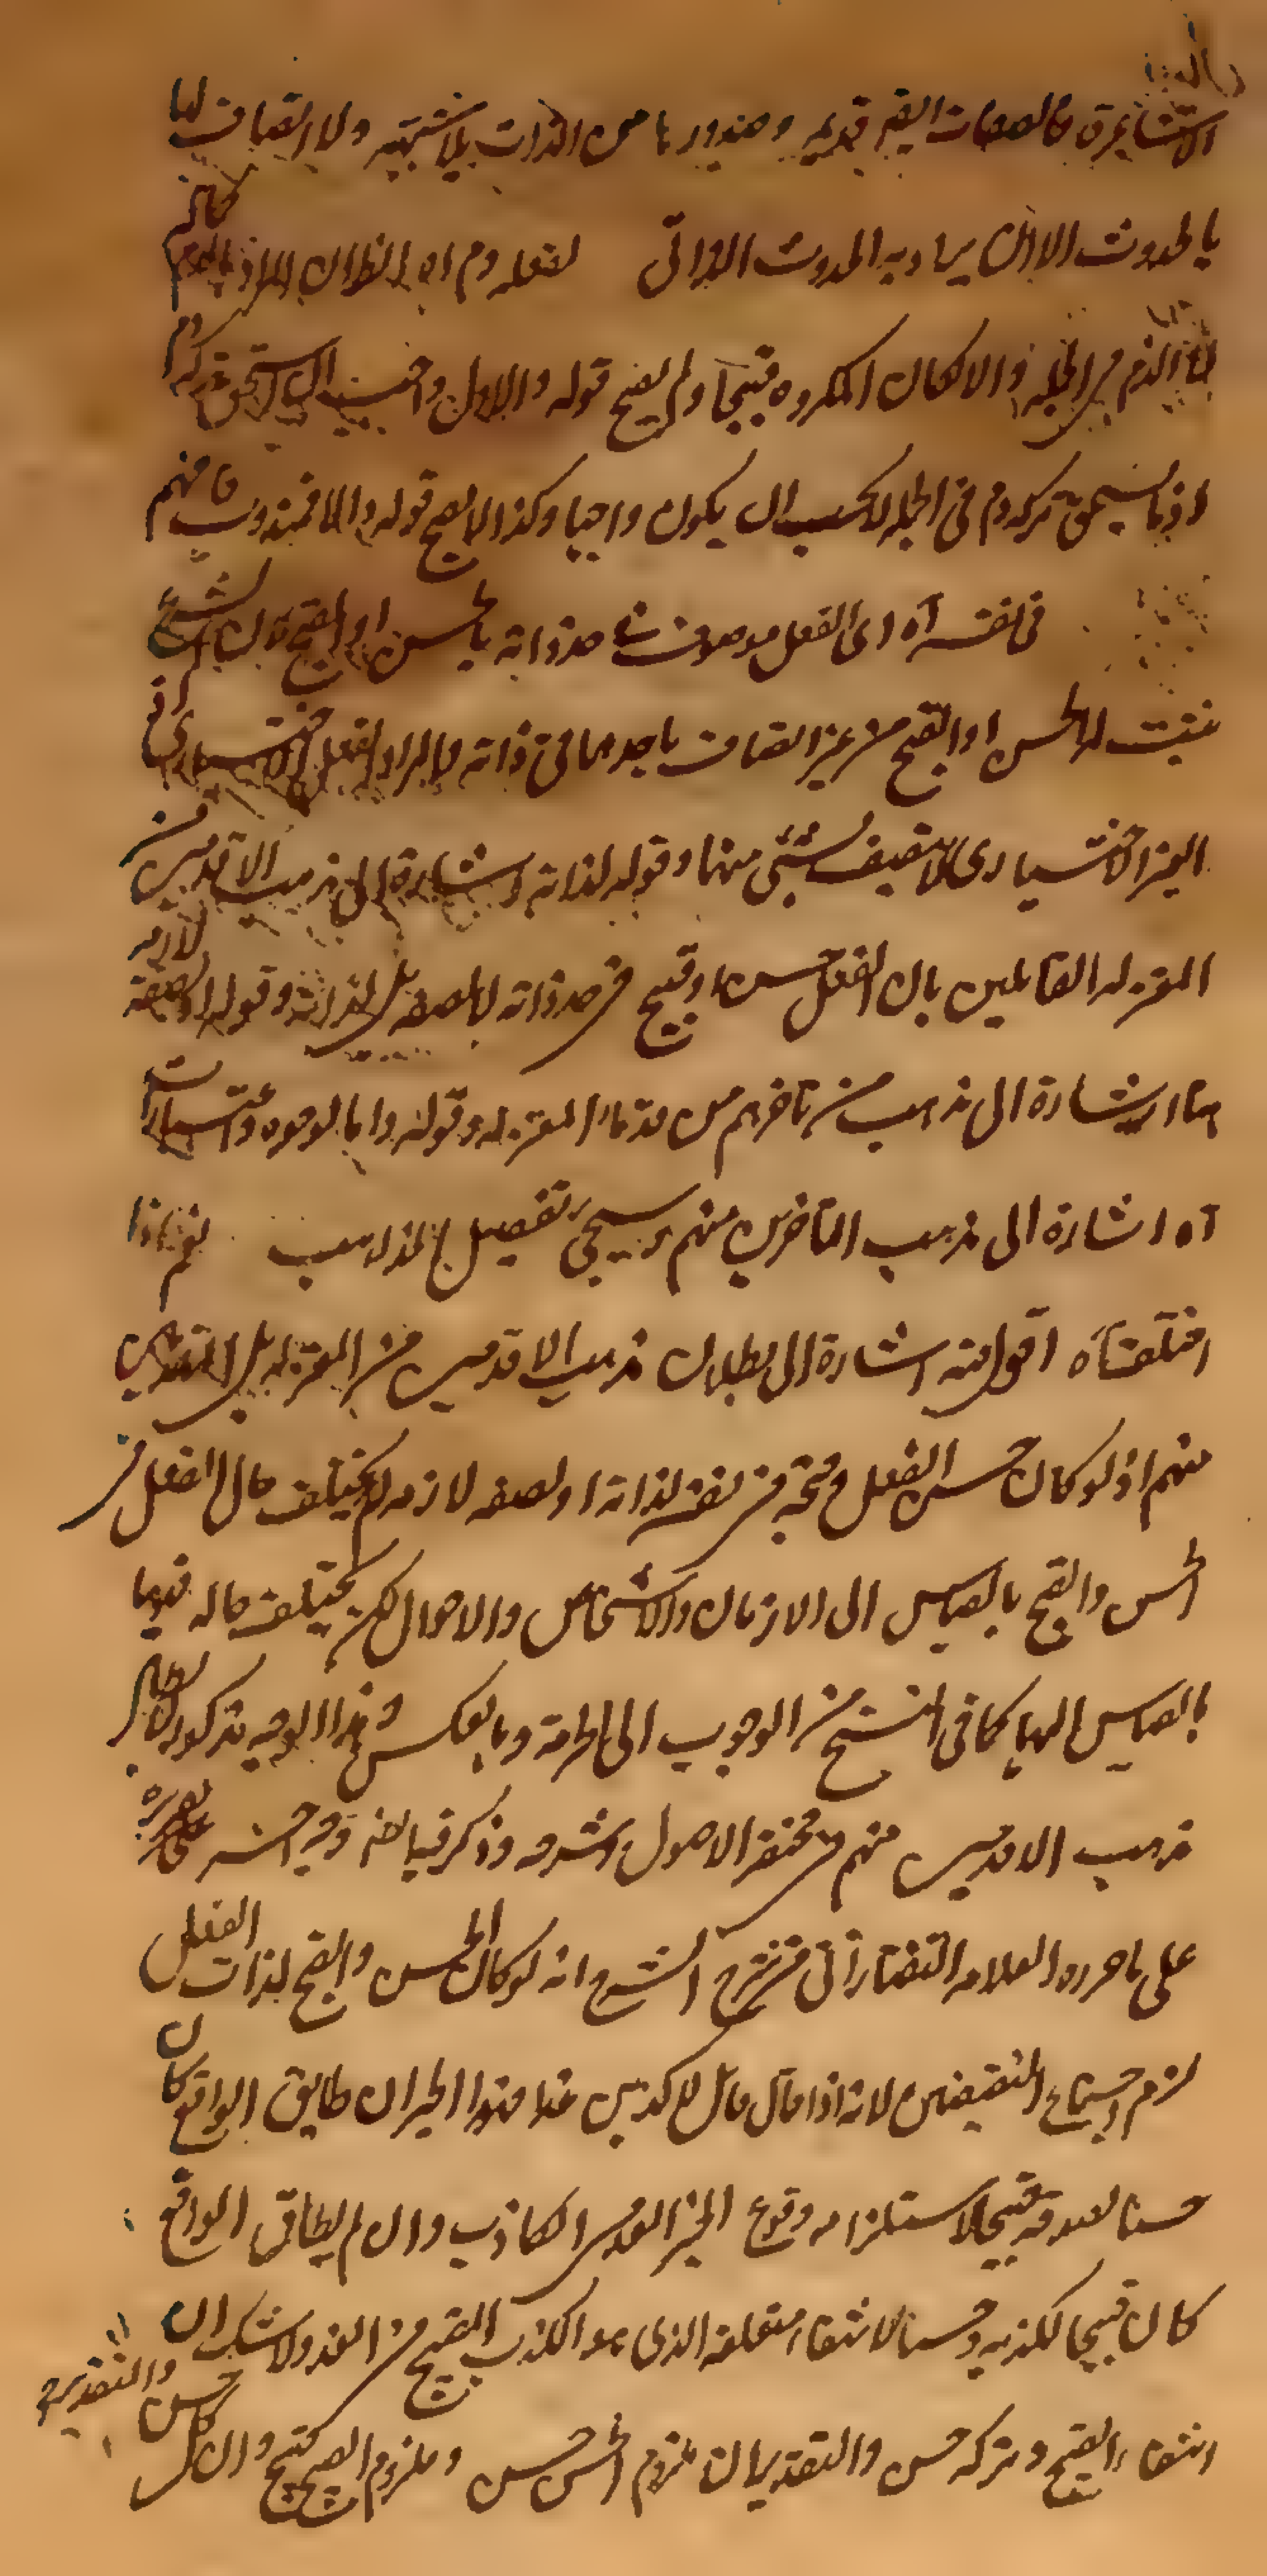 الاشاعرة فالصفات القديمة وصدورها من الذات بلا شبهة ولا اتصاف لها
بالحدوث الا ان يراد به الحدوث الذاتي لفعله وم اه الظاهر ان المراد بالذم
الذم في الجملة والا لكان المكروه قبيحا ولم يصح قوله والاول واجب ان استحق تركه ذم
اذ ما يستحق تركه ذم في الجملة لا يجب ان يكون واجبا وكذا لا يصح قوله والا فمندوب فافهم
في نفسه آه اى الفعل موصوف في حد ذاته بالحسن او القبح لا ان الشرع
يثبت له الحسن او القبح من غير اتصاف باحدهما في ذاته والمراد الفعل الاختيارى اذ
الغير الاختيارى لا يتصف بشئ منهما وقوله لذاته اشارة الى مذهب الاقدمين من
المعتزلة القايلين بان الفعل حسن او قبيح في حد ذاته لا لصفة بل لذاته وقوله او لصفة لازمة
اشارة الى مذهب من تاخرهم من قدماء المعتزلة وقوله واما لوجوه واعتبارات
آه اشارة الى مذهب المتاخرين منهم وسيجئ تفصيل المذاهب نعم اذا
اختلفتا آه اقول فيه اشارة الى بطلان مذهب الاقدمين من المعتزلة بل المتقدمين
منهم اذ لو كان حسن الفعل وقبحه في نفسه لذاته او لصفة لازمة لم يختلف حال الفعل في
الحسن والقبح بالقياس الى الازمان والاشخاص والاحوال لكن يختلف حاله فيهما
بالقياس اليها كما في النسخ من الوجوب الى الحرمة وبالعكس وهذا الوجه مذكور لابطال
مذهب الاقدمين منهم في مختصر الاصول وشرحه وذكر فيه ايضا وجه اخر تقريره
على ما حرره العلامة التفتازاني في شرح الشرح انه لو كان الحسن والقبح لذات الفعل
لزم اجتماع النقيضين لانه اذا قال قائل لاكذبن غدا فهذا الخبر ان طابق الواقع كان
حسنا لصدقه قبيحا لاستلزامه وقوع الخبر الغدى الكاذب وان لم يطابق الواقع
كان قبيحا لكذبه وحسنا لانتفاء متعلقه الذى هو الكذب القبيح من الغد ولا شك ان
انتفاء القبيح وتركه حسن والتقدير ان ملزوم الحسن حسن وملزوم القبيح قبيح وان كل حسن والتقدير